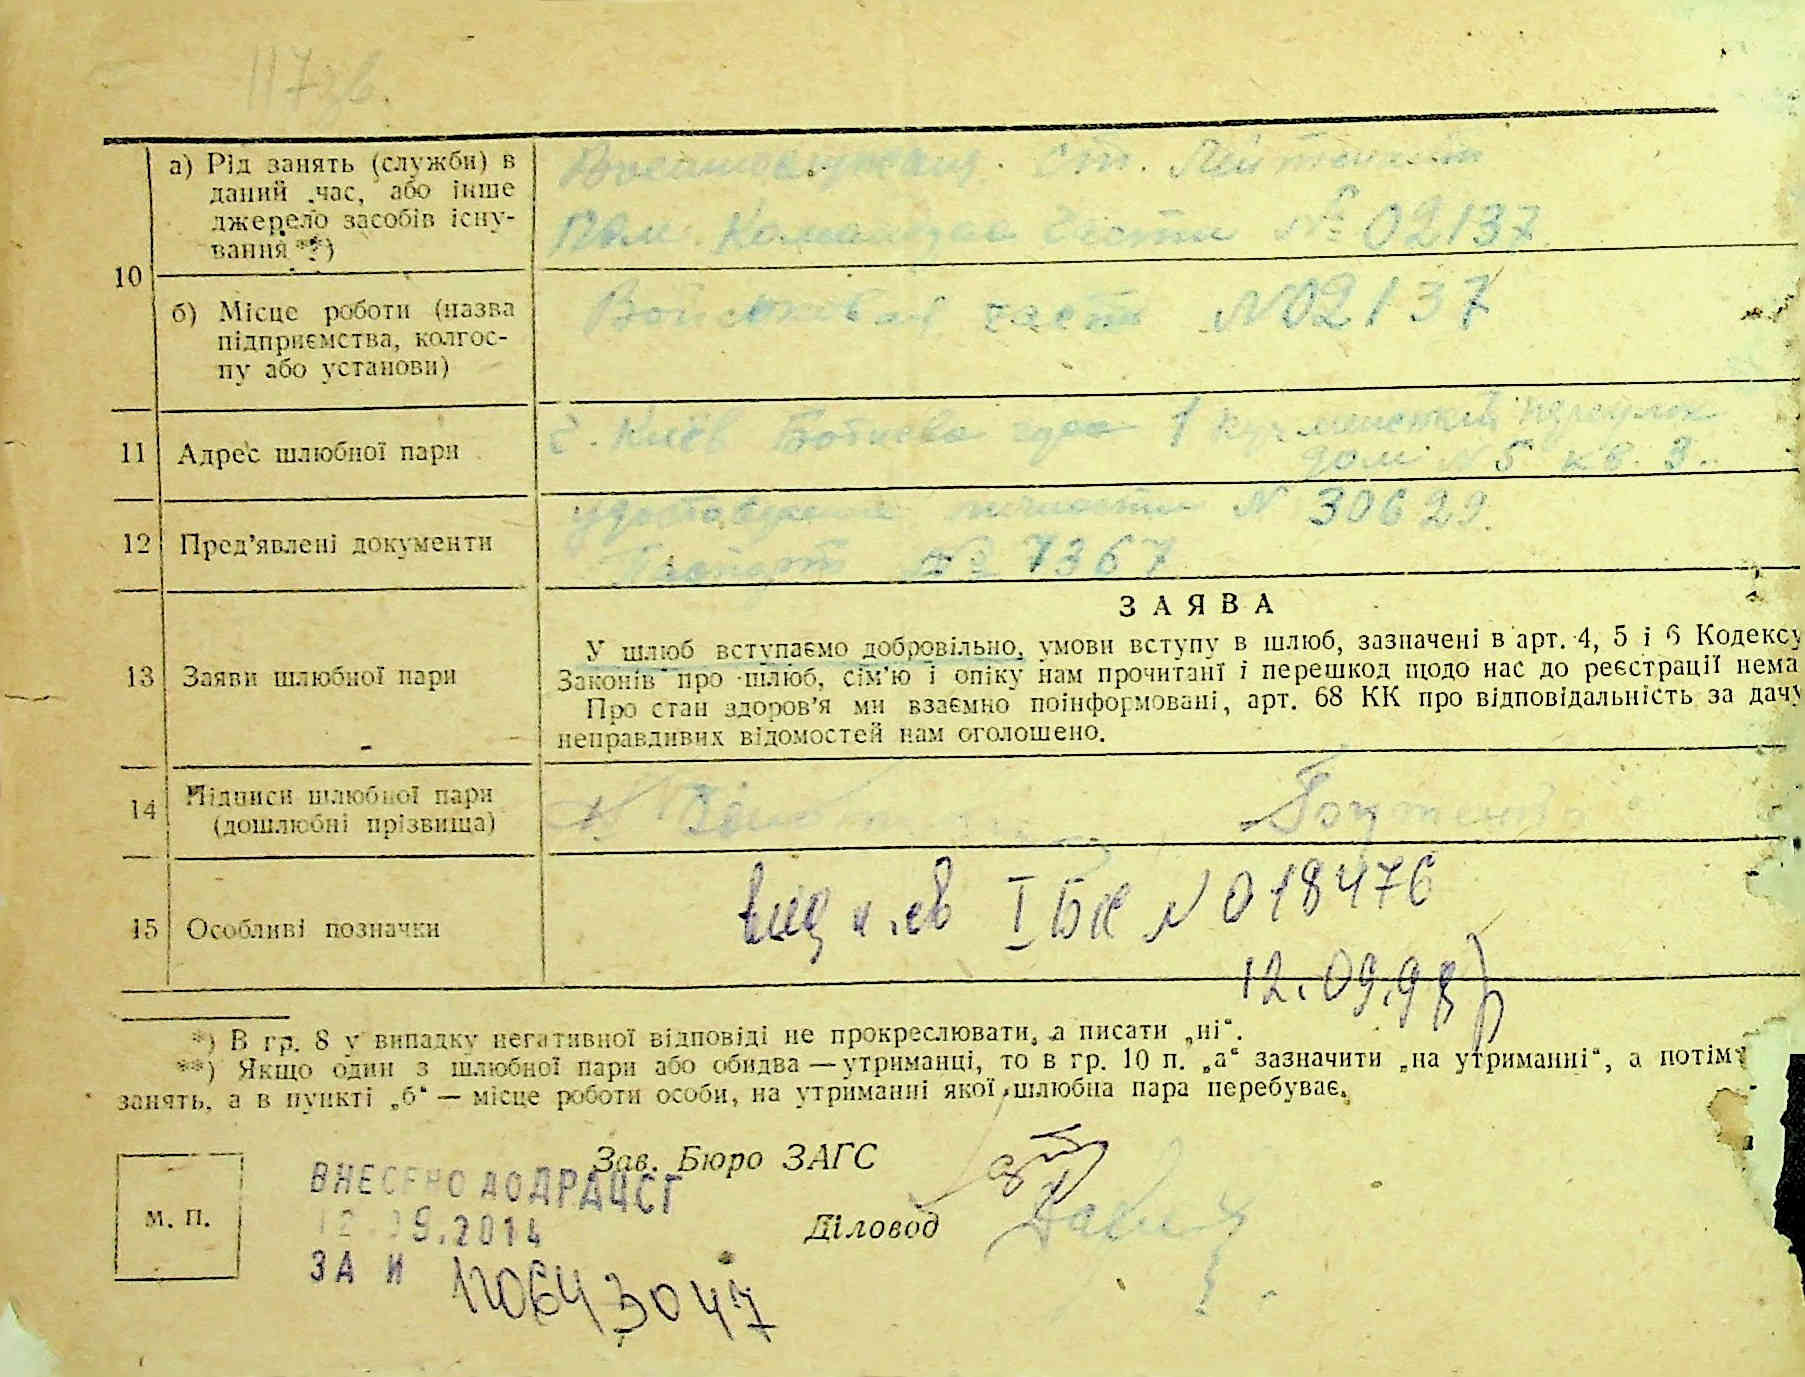 117зв.
а) Рід занять (служби) в
даний час, або інше
джерело засобів існу-
вання **)
Военнослужащ. Ст. Лейтенант
Пом. Командира Части № 02137
10
б) Місце роботи (назва
підприємства, колгос-
пу або установи)
Войсковая часть N 02137
11 Адрес шлюбної пари
г. Киев Батыева гора 1 переулок
дом N 5 кв. 3.
12 Пред’явлені документи
удостоверение личности N 30629.
Паспорт № 7367
ЗАЯВА
13 Заяви шлюбної пари
У шлюб вступаємо добровільно, умови вступу в шлюб, зазначені в арт. 4, 5 і 6 Кодексу
Законів про шлюб, сім’ю і опіку нам прочитані і перешкод щодо нас до реєстрації нема
Про стан здоров’я ми взаємно поінформовані, арт. 68 КК про відповідальність за дачу
неправдивих відомостей нам оголошено.
14 Підписи шлюбної пари
(дошлюбні прізвища)
15 Особливі позначки
I БК N 018476
12.09.98
*) В гр. 8 у випадку негативної відповіді не прокреслювати, а писати „ні“.
**) Якщо один з шлюбної пари або обидва — утриманці, то в гр. 10 п. „а“ зазначити „на утриманні“, а потім
занять, а в пункті „б“ — місце роботи особи, на утриманні якої шлюбна пара перебуває.
Зав. Бюро ЗАГС
ВНЕСЕНО ДО ДРАЦСГ
м. п.
12.09.2014
Діловод
ЗА И